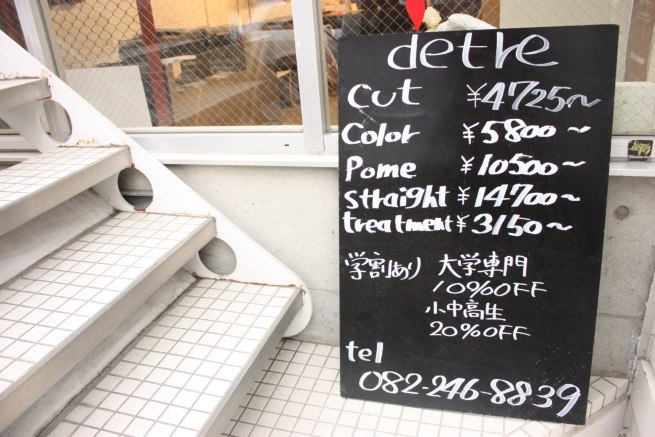 detre
cut ¥4725~
Color ¥5800~
Pome ¥10500~
straight ¥14700~
treatment ¥3150~
学割あり 大学専門
10%OFF
小中高生
20%OFF
tel
082-246-8839